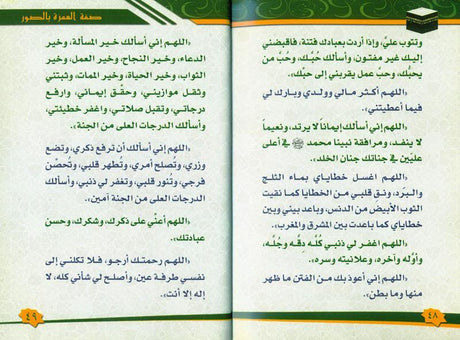 وتتوب عليَّ، وإذا أردت بعبادك فتنة، فاقبضني
إليك غير مفتون، وأسألك حُبَّك، وحُبَّ من
يحبُّك، وحبَّ عمل يقربني إلى حبِّك».
«اللهم أكثر مالي وولدي وبارك لي
فيما أعطيتني».
«اللهم إني أسألك إيماناً لا يرتد، ونعيماً
لا ينفد، ومرافقة نبينا محمد ﷺ في أعلى
عليّين في جناتك جنان الخلد».
«اللهم اغسل خطاياي بماء الثلج
والبَرَد، ونق قلبي من الخطايا كما نقيت
الثوب الأبيض من الدنس، وباعد بيني وبين
خطاياي كما باعدت بين المشرق والمغرب».
«اللهم اغفر لي ذنبي كُلَّه دِقَّه وجُلَّه،
وأوَّله وآخره، وعلانيته وسره».
«اللهم إني أعوذ بك من الفتن ما ظهر
منها وما بطن».
٤٨
صفة العمرة بالصور
«اللهم إني أسألك خير المسألة، وخير
الدعاء، وخير النجاح، وخير العمل، وخير
الثواب، وخير الحياة، وخير الممات، وثبتني
وثقل موازيني، وحقق إيماني، وارفع
درجاتي، وتقبل صلاتي، واغفر خطيئتي،
وأسألك الدرجات العلى من الجنة».
«اللهم إني أسألك أن ترفع ذكري، وتضع
وزري، وتُصلح أمري، وتُطهر قلبي، وتُحصّن
فرجي، وتنور قلبي، وتغفر لي ذنبي، وأسألك
الدرجات العلى من الجنة آمين».
«اللهم أعنّي على ذكرك، وشكرك، وحسن
عبادتك».
«اللهم رحمتك أرجو، فلا تكلني إلى
نفسي طرفة عين، وأصلح لي شأني كله، لا
إله إلا أنت».
٤٩